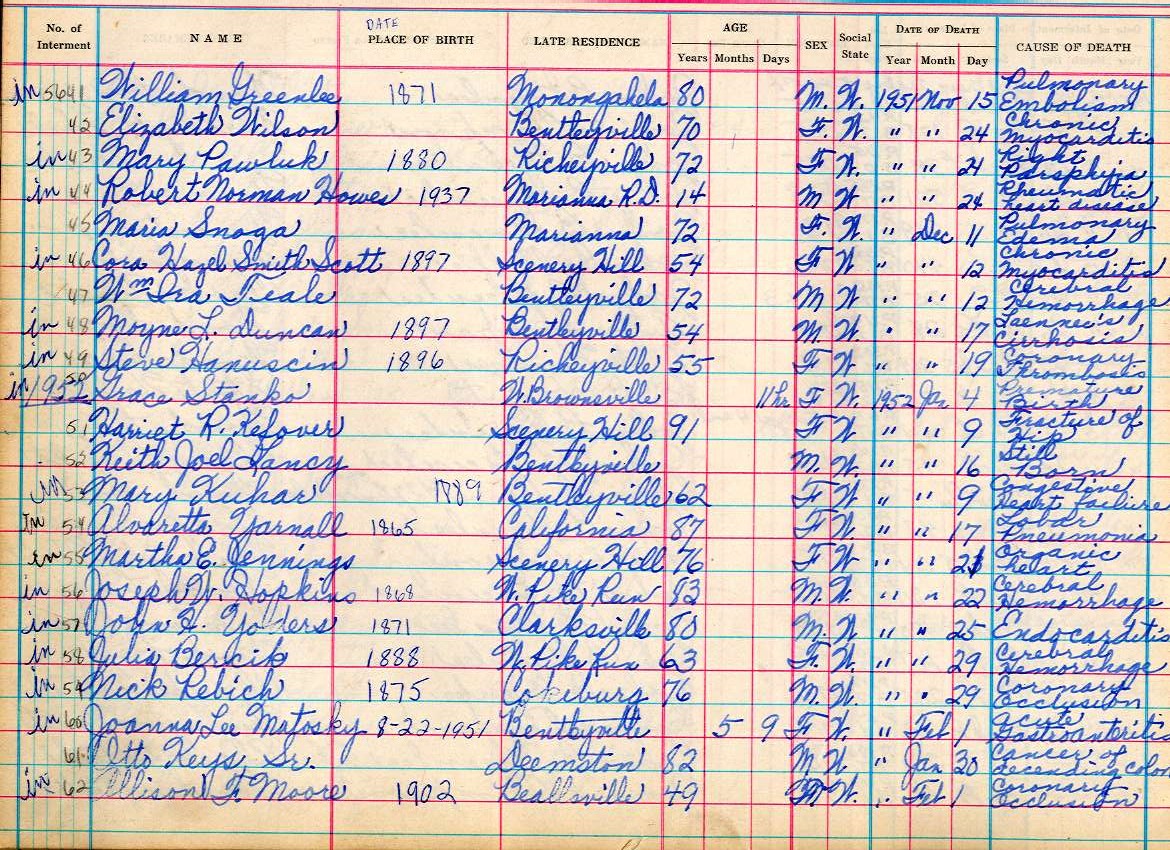 No. of Interment NAME DATE PLACE OF BIRTH LATE RESIDENCE AGE Years Months Days SEX Social State DATE OF DEATH Year Month Day CAUSE OF DEATH
in 5641 William Greenlee 1871 Monongahela 80 M. W. 1951 Nov 15 Pulmonary Embolism
42 Elizabeth Wilson Bentleyville 70 F. W. " " 24 Chronic Myocarditis
in 43 Mary Pawluk 1880 Richeyville 72 F W. " " 24 Right
in 44 Robert Norman Howes 1937 Marianna R.D. 14 M W " " 24 Rheumatic heart disease
45 Maria Snoga Marianna 72 F. W. " Dec 11 Pulmonary Edema
in 46 Cora Hazel Smith Scott 1897 Scenery Hill 54 F W " " 12 Chronic myocarditis
47 Wm Ira Teale Bentleyville 72 M W " " 12 Cerebral Hemorrhage
in 48 Moyne L. Duncan 1897 Bentleyville 54 M. W. " " 17 Laennec's Cirrhosis
in 49 Steve Hanuscin 1896 Richeyville 55 F W " " 19 Coronary Thrombosis
in 1952 50 Grace Stanko W. Brownsville 11hr F W. 1952 Jan 4 Premature Birth
51 Harriet R. Kefover Scenery Hill 91 F W " " 9 Fracture of Hip
52 Keith Joel Yancy Bentleyville M. W. " " 16 Still Born
in 53 Mary Kuhar 1889 Bentleyville 62 F W. " " 9 Congestive Heart failure
In 54 Alvaretta Yarnall 1865 California 87 F W. " " 17 Lobar Pneumonia
in 55 Martha E. Jennings Scenery Hill 76 F W " " 21 Organic heart
in 56 Joseph W. Hopkins 1868 W. Pike Run 83 M. W. " " 22 Cerebral Hemorrhage
in 57 John H. Yolders 1871 Clarksville 80 M. W " " 25 Endocarditis
in 58 Julia Bercik 1888 W. Pike Run 63 F. W. " " 29 Cerebral Hemorrhage
in 59 Nick Rebich 1875 Cokeburg 76 M. W. " " 29 Coronary Occlusion
in 60 Joanna Lee Matosky 8-22-1951 Bentleyville 5 9 F W. " Feb 1 acute Gastroenteritis
61 Otto Keys, Sr. Deemston 82 M W. " Jan 30 Cancer of decending colon
in 62 Allison F. Moore 1902 Beallsville 49 M W. " Feb 1 Coronary Occlusion